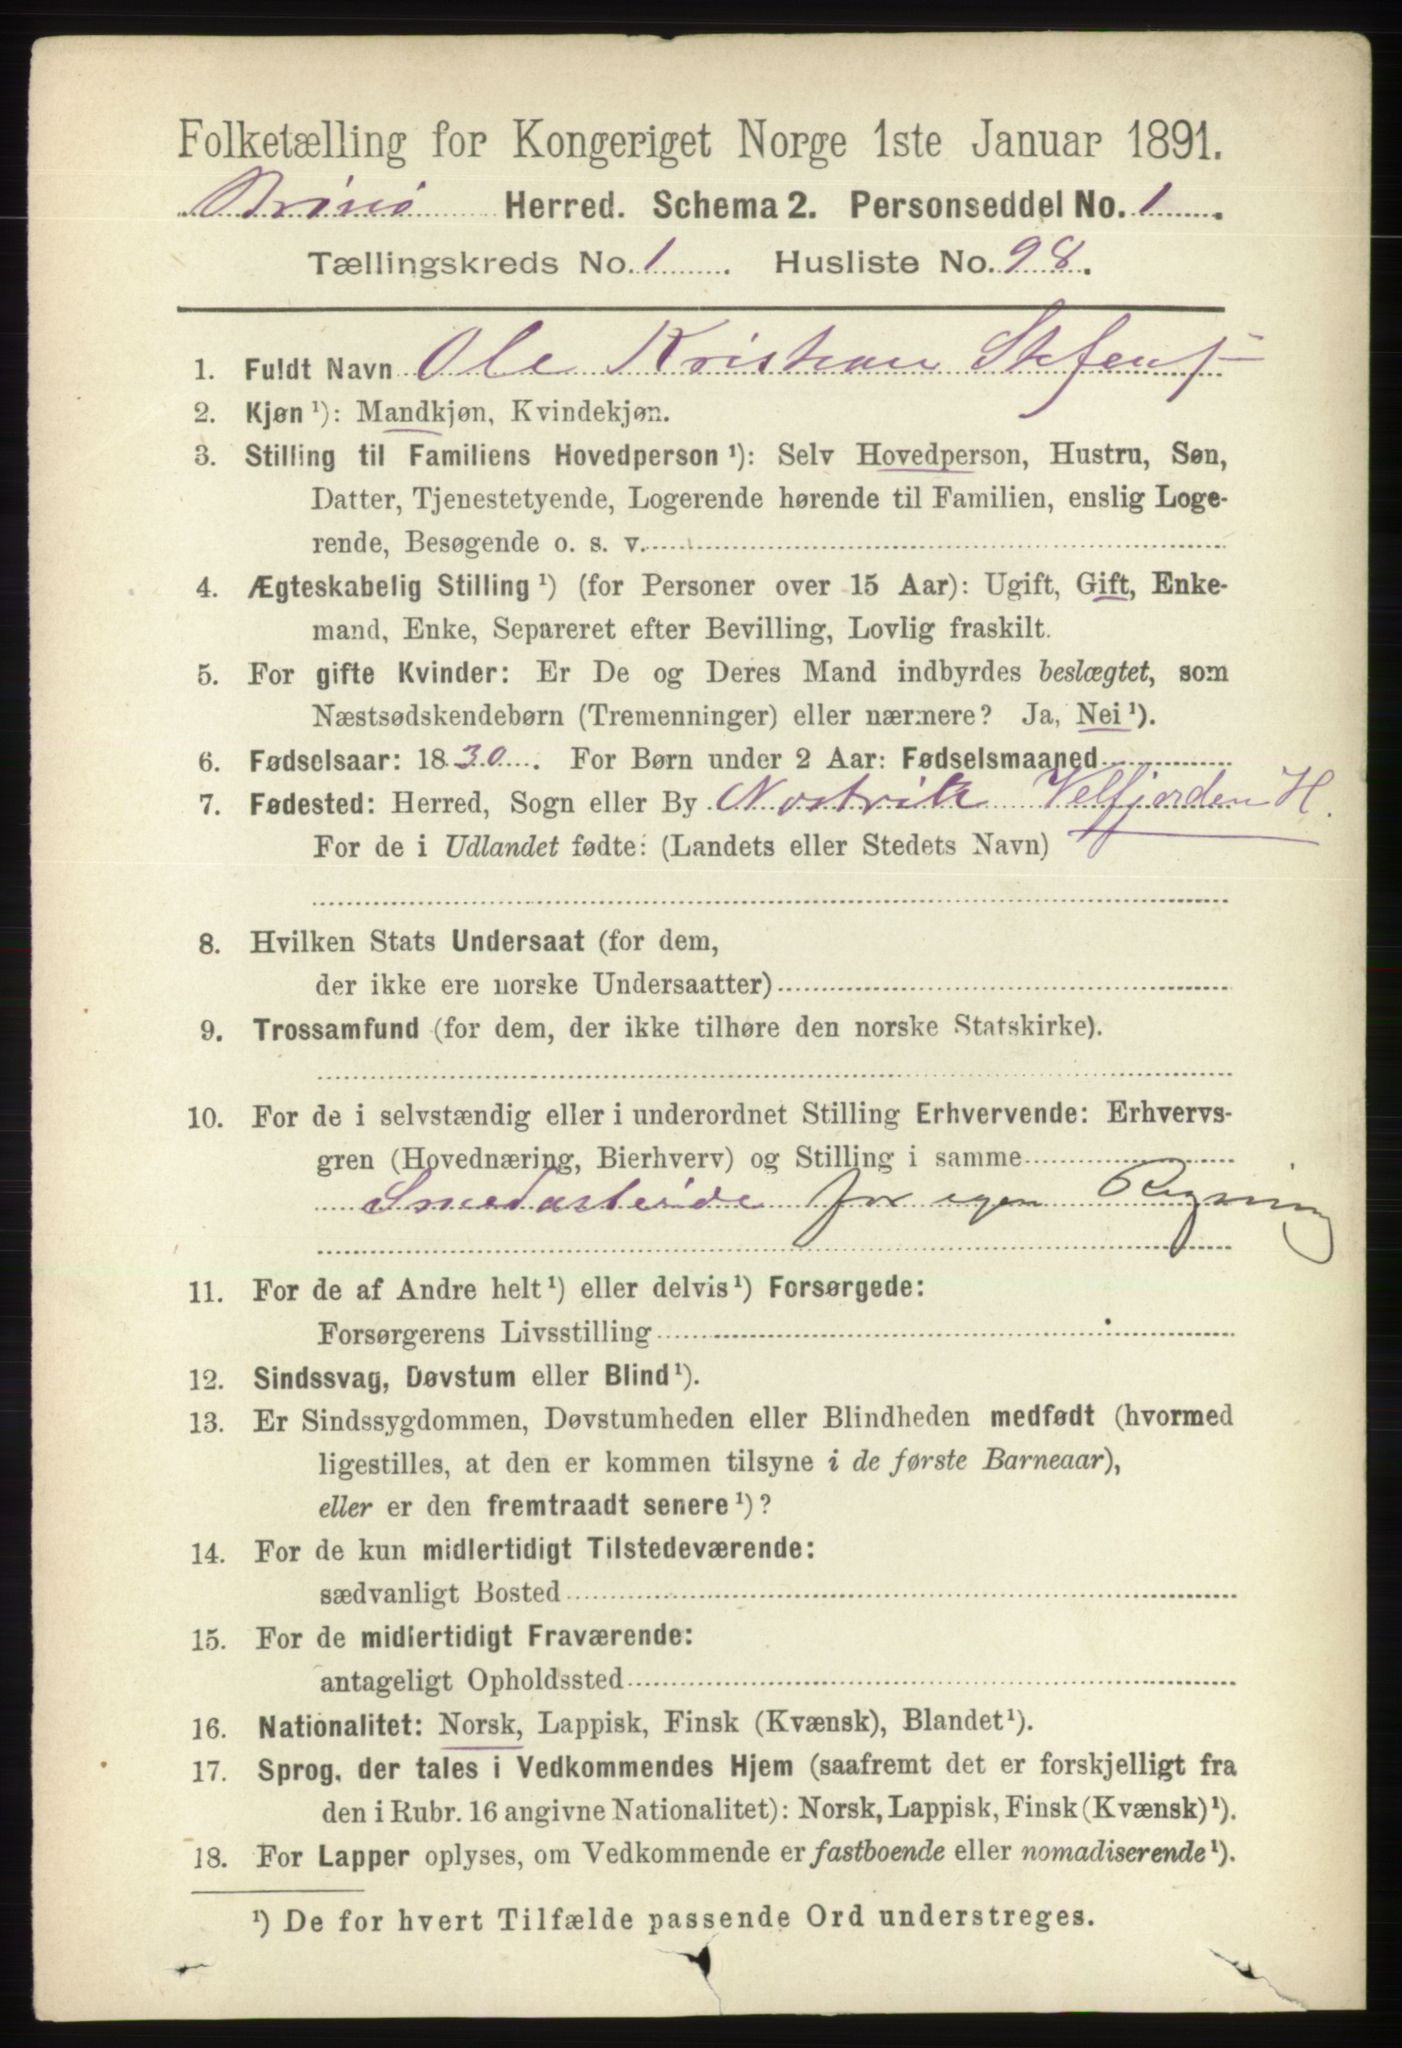 Folketælling for Kongeriget Norge 1ste Januar 1891.
Brønø Herred. Schema 2. Personseddel No. 1.
Tællingskreds No. 1. Husliste No. 98.
1. Fuldt Navn Ole Kristian
2. Kjøn ¹): Mandkjøn, Kvindekjøn.
3. Stilling til Familiens Hovedperson ¹): Selv Hovedperson, Hustru, Søn,
Datter, Tjenestetyende, Logerende hørende til Familien, enslig Loge-
rende, Besøgende o. s. v.
4. Ægteskabelig Stilling ¹) (for Personer over 15 Aar): Ugift, Gift, Enke-
mand, Enke, Separeret efter Bevilling, Lovlig fraskilt.
5. For gifte Kvinder: Er De og Deres Mand indbyrdes beslægtet, som
Næstsødskendebørn (Tremenninger) eller nærmere? Ja, Nei ¹).
6. Fødselsaar: 1830. For Børn under 2 Aar: Fødselsmaaned
7. Fødested: Herred, Sogn eller By Nostvik Velfjorden H.
For de i Udlandet fødte: (Landets eller Stedets Navn)
8. Hvilken Stats Undersaat (for dem,
der ikke ere norske Undersaatter)
9. Trossamfund (for dem, der ikke tilhøre den norske Statskirke).
10. For de i selvstændig eller i underordnet Stilling Erhvervende: Erhvervs-
gren (Hovednæring, Bierhverv) og Stilling i samme
Smedarbeide for egen Regning
11. For de af Andre helt ¹) eller delvis ¹) Forsørgede:
Forsørgerens Livsstilling
12. Sindssvag, Døvstum eller Blind ¹).
13. Er Sindssygdommen, Døvstumheden eller Blindheden medfødt (hvormed
ligestilles, at den er kommen tilsyne i de første Barneaar),
eller er den fremtraadt senere ¹)?
14. For de kun midlertidigt Tilstedeværende:
sædvanligt Bosted
15. For de midlertidigt Fraværende:
antageligt Opholdssted
16. Nationalitet: Norsk, Lappisk, Finsk (Kvænsk), Blandet ¹).
17. Sprog, der tales i Vedkommendes Hjem (saafremt det er forskjelligt fra
den i Rubr. 16 angivne Nationalitet): Norsk, Lappisk, Finsk (Kvænsk) ¹).
18. For Lapper oplyses, om Vedkommende er fastboende eller nomadiserende ¹).
¹) De for hvert Tilfælde passende Ord understreges.